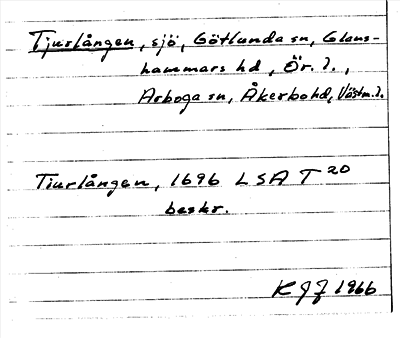 Tjurlången, sjö, Götlunda sn, Glans-
hammars hd, Ör. l.,
Arboga sn, Åkerbo hd, Västm. l.
Tiurlången, 1696 LSA T 20
beskr.
KGJ 1966